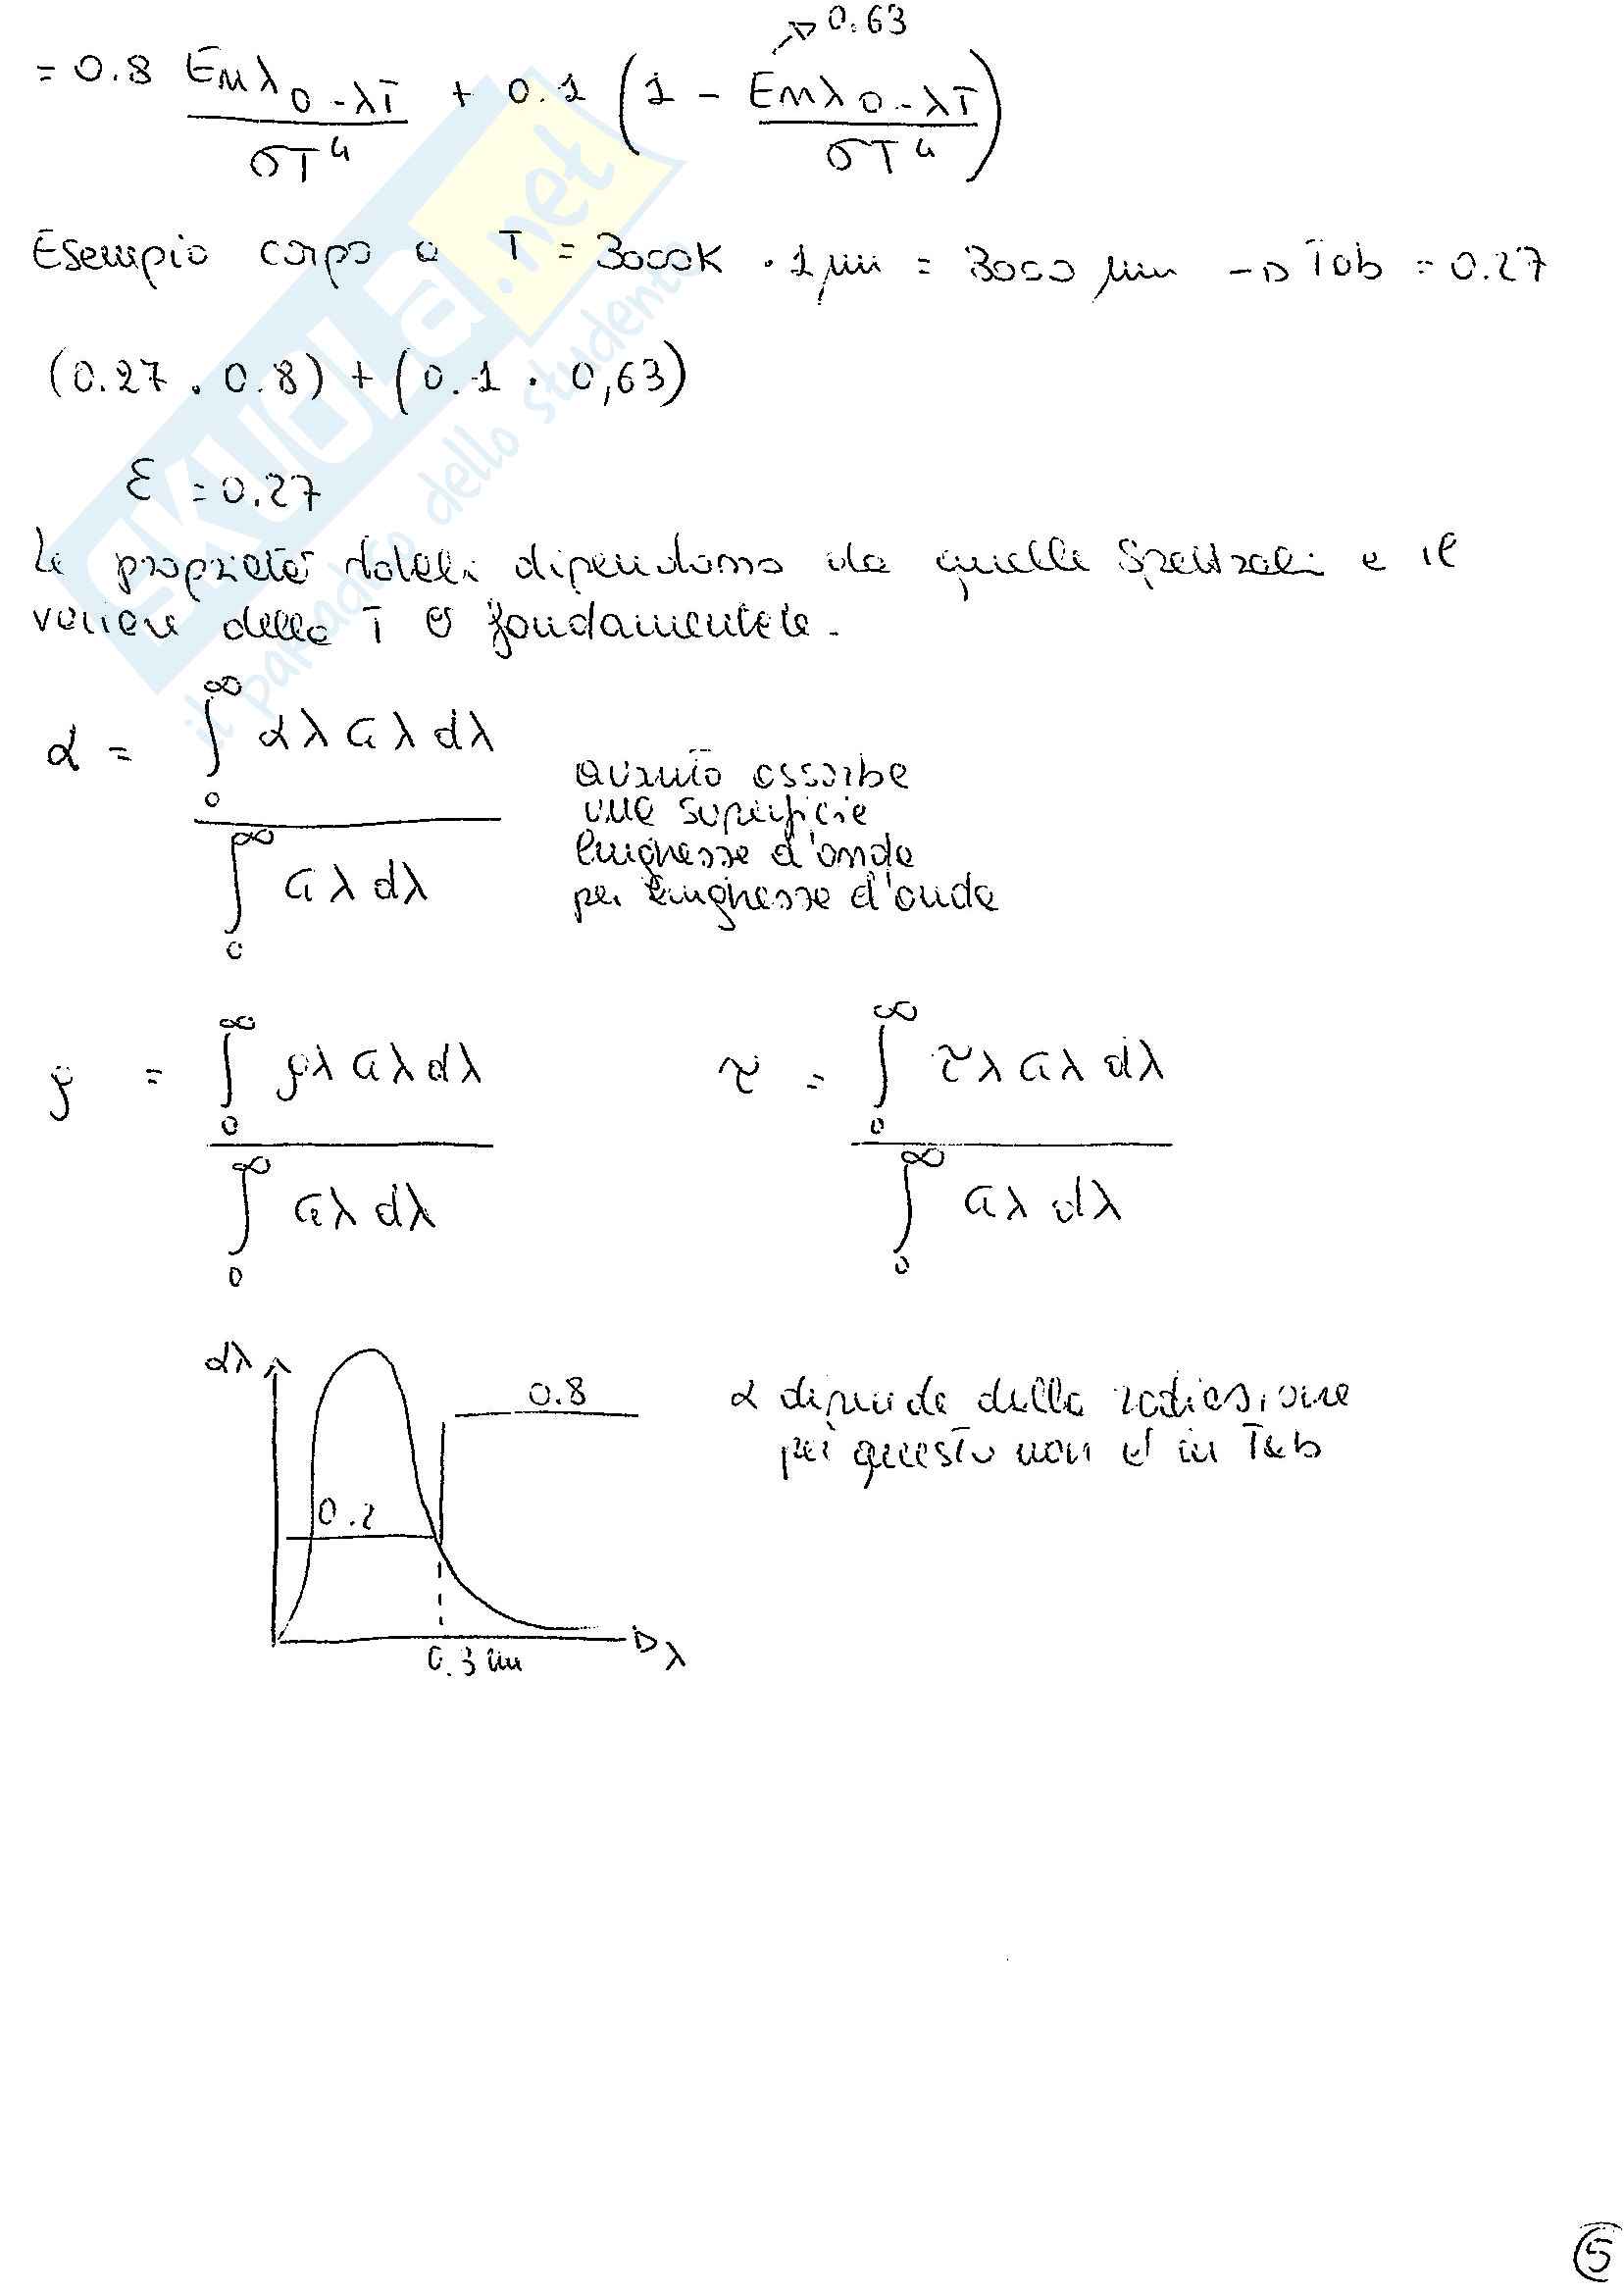 → 0.63
= 0.8 Enλ 0-λT / σT⁴ + 0.1 (1 - Enλ 0-λT / σT⁴)
Esempio corpo a T = 3000K · 1 μm = 3000 μm → Tab = 0.27
(0.27 . 0.8) + (0.1 · 0,63)
ε = 0.27
Le proprietà totali dipendono da quelle spettrali e il
valore della T è fondamentale.
α = ∫₀^∞ αλ Gλ dλ / ∫₀^∞ Gλ dλ
Quanto assorbe
una superficie
lunghezze d'onda
per lunghezze d'onda
ρ = ∫₀^∞ ρλ Gλ dλ / ∫₀^∞ Gλ dλ
τ = ∫₀^∞ τλ Gλ dλ / ∫₀^∞ Gλ dλ
αλ
0.8
0.2
0.3 μm
λ
α dipende dalla radiazione
per questo non è in Tab
5
SKUOLA.net
il paradiso dello studente